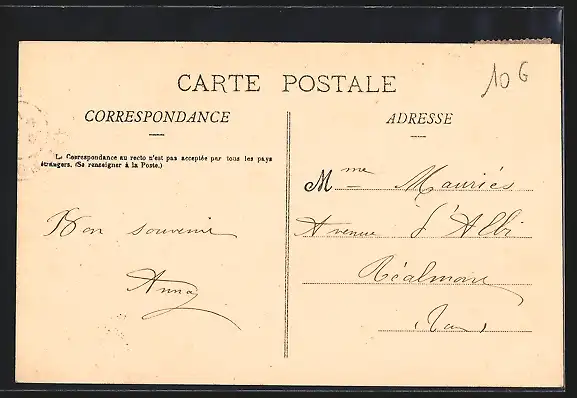 10G
CARTE POSTALE
CORRESPONDANCE
ADRESSE
La Correspondance au recto n'est pas acceptée par tous les pays
étrangers. (Se renseigner à la Poste.)
Mme Mauriés
Bon souvenir
Avenue d'Albi
Anna
Réalmont
(Tarn)